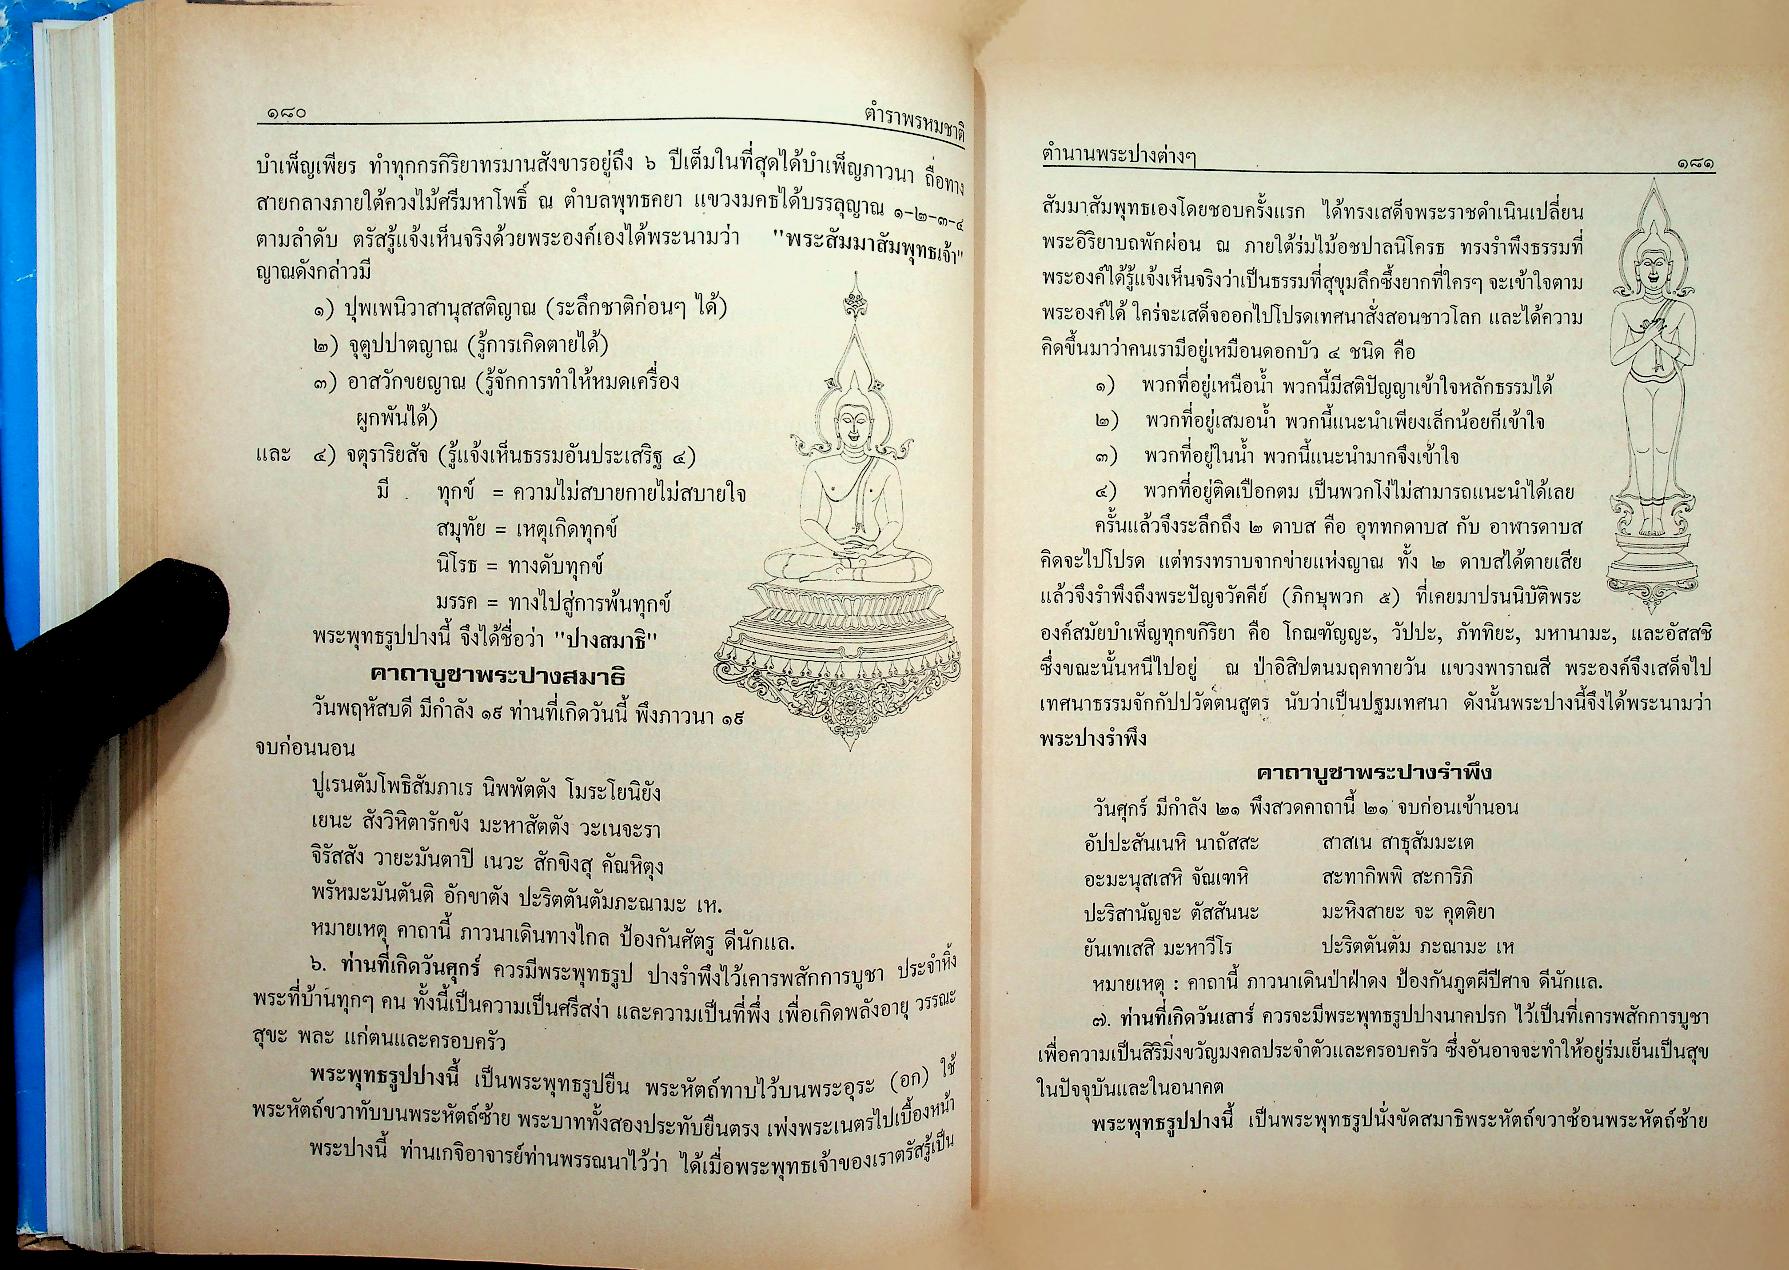 ๑๘๐
ตำราพรหมชาติ
บำเพ็ญเพียร ทำทุกกรกิริยาทรมานสังขารอยู่ถึง ๖ ปีเต็มในที่สุดได้บำเพ็ญภาวนา ถื่อทาง
สายกลางภายใต้ควงไม้ศรีมหาโพธิ์ ณ ตำบลพุทธคยา แขวงมคธได้บรรลุญาณ ๑-๒-๓-๔
ตามลำดับ ตรัสรู้แจ้งเห็นจริงด้วยพระองค์เองได้พระนามว่า "พระสัมมาสัมพุทธเจ้า"
ญาณดังกล่าวมี
๑) ปุพเพนิวาสานุสสติญาณ (ระลึกชาติก่อนๆ ได้)
๒) จุตูปปาตญาณ (รู้การเกิดตายได้)
๓) อาสวักขยญาณ (รู้จักการทำให้หมดเครื่อง
ผูกพันได้)
และ ๔) จตุราริยสัจ (รู้แจ้งเห็นธรรมอันประเสริฐ ๔)
มี ทุกข์ = ความไม่สบายกายไม่สบายใจ
สมุทัย = เหตุเกิดทุกข์
นิโรธ = ทางดับทุกข์
มรรค = ทางไปสู่การพ้นทุกข์
พระพุทธรูปปางนี้ จึงได้ชื่อว่า "ปางสมาธิ"
คาถาบูชาพระปางสมาธิ
วันพฤหัสบดี มีกำลัง ๑๙ ท่านที่เกิดวันนี้ พึงภาวนา ๑๙
จบก่อนนอน
ปูเรนตัมโพธิสัมภาเร นิพพัตตัง โมระโยนิยัง
เยนะ สังวิหิตารักขัง มะหาสัตตัง วะเนจะรา
จิรัสสัง วายะมันตาปิ เนวะ สักขิงสุ คัณหิตุง
พรัหมะมันตันติ อักขาตัง ปะริตตันตัมภะณามะ เห.
หมายเหตุ คาถานี้ ภาวนาเดินทางไกล ป้องกันศัตรู ดีนักแล.
๖. ท่านที่เกิดวันศุกร์ ควรมีพระพุทธรูป ปางรำพึงไว้เคารพสักการบูชา ประจำหิ้ง
พระที่บ้านทุกๆ คน ทั้งนี้เป็นความเป็นศรีสง่า และความเป็นที่พึ่ง เพื่อเกิดพลังอายุ วรรณะ
สุขะ พละ แก่ตนและครอบครัว
พระพุทธรูปปางนี้ เป็นพระพุทธรูปยืน พระหัตถ์ทาบไว้บนพระอุระ (อก) ใช้
พระหัตถ์ขวาทับบนพระหัตถ์ซ้าย พระบาททั้งสองประทับยืนตรง เพ่งพระเนตรไปเบื้องหน้า
พระปางนี้ ท่านเกจิอาจารย์ท่านพรรณนาไว้ว่า ได้เมื่อพระพุทธเจ้าของเราตรัสรู้เป็น
ตำนานพระปางต่างๆ
๑๘๑
สัมมาสัมพุทธเองโดยชอบครั้งแรก ได้ทรงเสด็จพระราชดำเนินเปลี่ยน
พระอิริยาบถพักผ่อน ณ ภายใต้ร่มไม้อชปาลนิโครธ ทรงรำพึงธรรมที่
พระองค์ได้รู้แจ้งเห็นจริงว่าเป็นธรรมที่สุขุมลึกซึ้งยากที่ใครๆ จะเข้าใจตาม
พระองค์ได้ ใคร่จะเสด็จออกไปโปรดเทศนาสั่งสอนชาวโลก และได้ความ
คิดขึ้นมาว่าคนเรามีอยู่เหมือนดอกบัว ๔ ชนิด คือ
๑) พวกที่อยู่เหนือน้ำ พวกนี้มีสติปัญญาเข้าใจหลักธรรมได้
๒) พวกที่อยู่เสมอน้ำ พวกนี้แนะนำเพียงเล็กน้อยก็เข้าใจ
๓) พวกที่อยู่ในน้ำ พวกนี้แนะนำมากจึงเข้าใจ
๔) พวกที่อยู่ติดเปือกตม เป็นพวกโง่ไม่สามารถแนะนำได้เลย
ครั้นแล้วจึงระลึกถึง ๒ ดาบส คือ อุททกดาบส กับ อาฬารดาบส
คิดจะไปโปรด แต่ทรงทราบจากข่ายแห่งญาณ ทั้ง ๒ ดาบสได้ตายเสีย
แล้วจึงรำพึงถึงพระปัญจวัคคีย์ (ภิกษุพวก ๕) ที่เคยมาปรนนิบัติพระ
องค์สมัยบำเพ็ญทุกขกิริยา คือ โกณฑัญญะ, วัปปะ, ภัททิยะ, มหานามะ, และอัสสชิ
ซึ่งขณะนั้นหนีไปอยู่ ณ ป่าอิสิปตนมฤคทายวัน แขวงพาราณสี พระองค์จึงเสด็จไป
เทศนาธรรมจักกัปปวัตตนสูตร นับว่าเป็นปฐมเทศนา ดังนั้นพระปางนี้จึงได้พระนามว่า
พระปางรำพึง
คาถาบูชาพระปางรำพึง
วันศุกร์ มีกำลัง ๒๑ พึงสวดคาถานี้ ๒๑ จบก่อนเข้านอน
อัปปะสันเนหิ นาถัสสะ สาสเน สาธุสัมมะเต
อะมะนุสเสหิ จัณเฑหิ สะทากิพพิ สะการิภิ
ปะริสานัญจะ ตัสสันนะ มะหิงสายะ จะ คุตติยา
ยันเทเสสิ มะหาวีโร ปะริตตันตัม ภะณามะ เห
หมายเหตุ : คาถานี้ ภาวนาเดินป่าฝ่าดง ป้องกันภูตผีปีศาจ ดีนักแล.
๗. ท่านที่เกิดวันเสาร์ ควรจะมีพระพุทธรูปปางนาคปรก ไว้เป็นที่เคารพสักการบูชา
เพื่อความเป็นสิริมิ่งขวัญมงคลประจำตัวและครอบครัว ซึ่งอันอาจจะทำให้อยู่ร่มเย็นเป็นสุข
ในปัจจุบันและในอนาคต
พระพุทธรูปปางนี้ เป็นพระพุทธรูปนั่งขัดสมาธิพระหัตถ์ขวาซ้อนพระหัตถ์ซ้าย